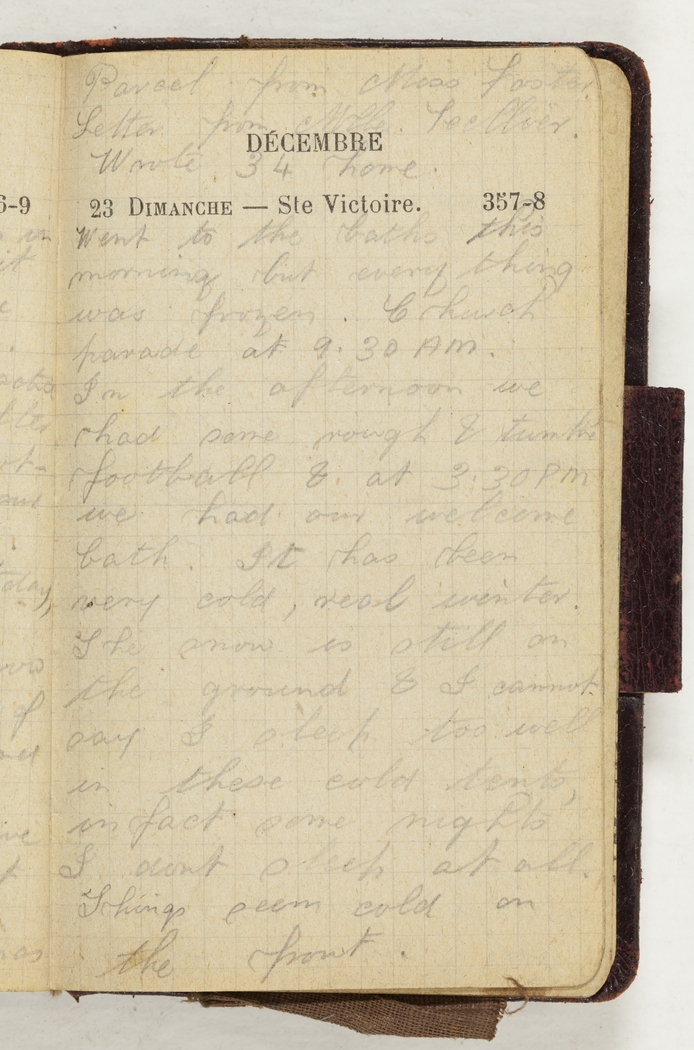 Parcel from Miss Foster
Letter from Mlle.
DÉCEMBRE
Wrote 34 home.
6-9
23 DIMANCHE — Ste Victoire. 357-8
Went to the baths this
morning but every thing
was frozen. Church
parade at 9.30 AM.
In the afternoon we
had some rough & tumble
football & at 3.30 PM
we had our welcome
bath. It has been
very cold, real winter.
The snow is still on
the ground & I cannot
say I sleep too well
in these cold tents,
in fact some nights
I dont sleep at all.
Things seem cold on
the front.